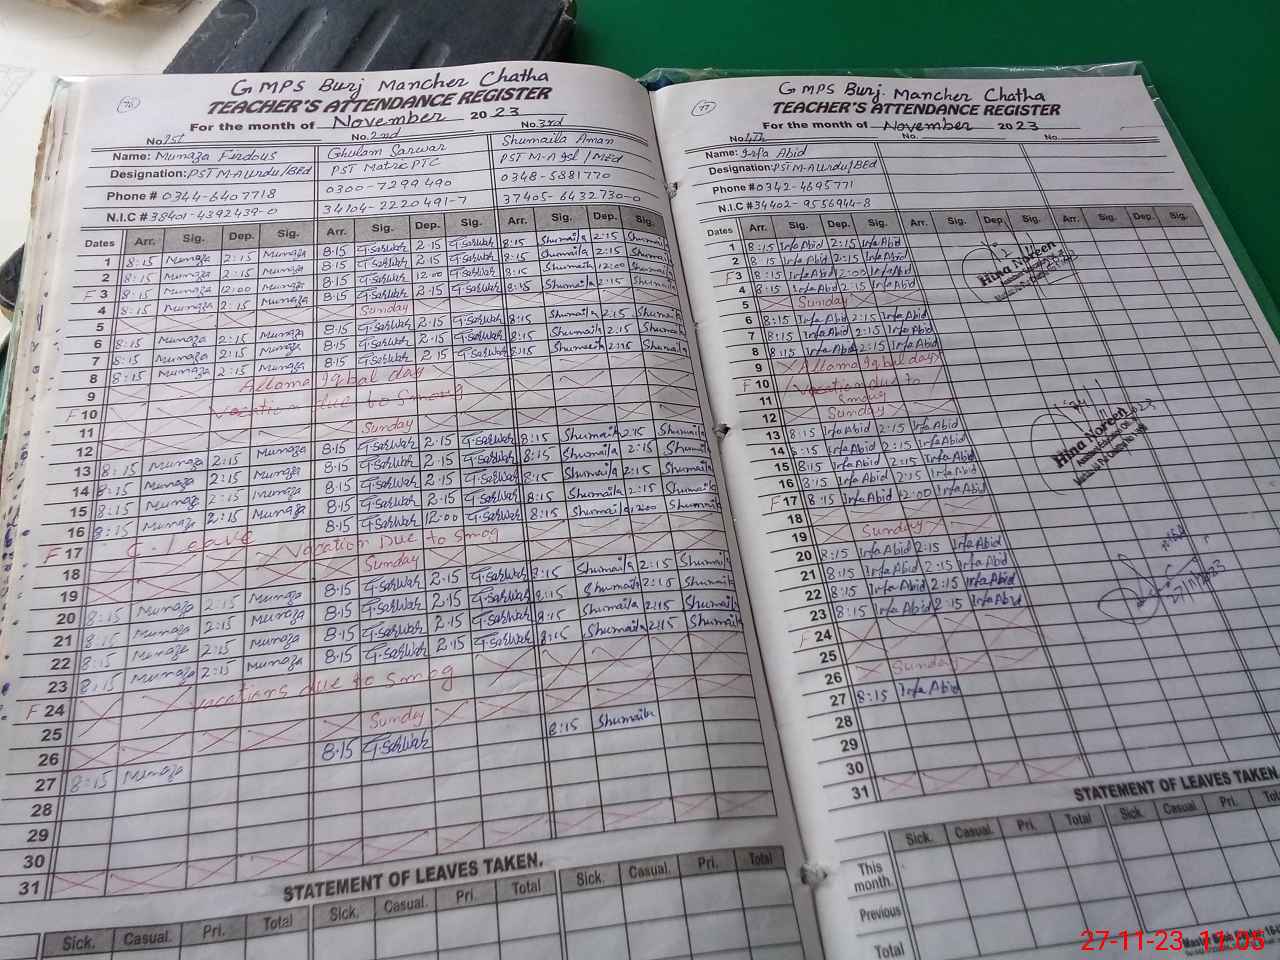 76
GMPS Burj Mancher Chatha
TEACHER'S ATTENDANCE REGISTER
For the month of November 2023
No. 1st No. 2nd No. 3rd
Name: Munaza Firdous Ghulam Sarwar Shumaila Aman
Designation: PST M-A Urdu/BEd PST Matric PTC PST M-A Isl/Med
Phone # 0344-6407718 0300-7299490 0348-5881770
N.I.C # 38401-4392439-0 34104-2220491-7 37405-6432730-0
Dates Arr. Sig. Dep. Sig. Arr. Sig. Dep. Sig. Arr. Sig. Dep. Sig.
1 8:15 Munaza 2:15 Munaza 8.15 G.Sarwar 2.15 G.Sarwar 8:15 Shumaila 2:15 Shumaila
2 8:15 Munaza 2:15 Munaza 8.15 G.Sarwar 2.15 G.Sarwar 8:15 Shumaila 2:15 Shumaila
F 3 8:15 Munaza 12:00 Munaza 8.15 G.Sarwar 12.00 G.Sarwar 8:15 Shumaila 12:00 Shumaila
4 8:15 Munaza 2:15 Munaza 8.15 G.Sarwar 2.15 G.Sarwar 8:15 Shumaila 2:15 Shumaila
5 Sunday
6 8:15 Munaza 2:15 Munaza 8.15 G.Sarwar 2.15 G.Sarwar 8:15 Shumaila 2:15 Shumaila
7 8:15 Munaza 2:15 Munaza 8.15 G.Sarwar 2.15 G.Sarwar 8:15 Shumaila 2:15 Shumaila
8 8:15 Munaza 2:15 Munaza 8.15 G.Sarwar 2.15 G.Sarwar 8:15 Shumaila 2:15 Shumaila
9 Allama Iqbal day
F 10 Vacation due to Smoug
11
12 Sunday
13 8:15 Munaza 2:15 Munaza 8.15 G.Sarwar 2.15 G.Sarwar 8:15 Shumaila 2:15 Shumaila
14 8:15 Munaza 2:15 Munaza 8.15 G.Sarwar 2.15 G.Sarwar 8:15 Shumaila 2:15 Shumaila
15 8:15 Munaza 2:15 Munaza 8.15 G.Sarwar 2.15 G.Sarwar 8:15 Shumaila 2:15 Shumaila
16 8:15 Munaza 2:15 Munaza 8.15 G.Sarwar 2.15 G.Sarwar 8:15 Shumaila 2:15 Shumaila
F 17 C. Leave 8.15 G.Sarwar 12.00 G.Sarwar 8:15 Shumaila 12:00 Shumaila
18 Vacation Due to Smog
19 Sunday
20 8:15 Munaza 2:15 Munaza 8.15 G.Sarwar 2.15 G.Sarwar 8:15 Shumaila 2:15 Shumaila
21 8:15 Munaza 2:15 Munaza 8.15 G.Sarwar 2.15 G.Sarwar 8:15 Shumaila 2:15 Shumaila
22 8:15 Munaza 2:15 Munaza 8.15 G.Sarwar 2.15 G.Sarwar 8:15 Shumaila 2:15 Shumaila
23 8:15 Munaza 2:15 Munaza 8.15 G.Sarwar 2.15 G.Sarwar 8:15 Shumaila 2:15 Shumaila
F 24 Vacations due to Smog
25
26 Sunday
27 8:15 Munaza 8.15 G.Sarwar 8:15 Shumaila
28
29
30
31
STATEMENT OF LEAVES TAKEN.
Sick. Casual. Pri. Total Sick. Casual. Pri. Total Sick. Casual. Pri. Total
77
GMPS Burj Mancher Chatha
TEACHER'S ATTENDANCE REGISTER
For the month of November 2023
No. 4th No. No.
Name: Irfa Abid
Designation: PST M-A Urdu/BEd
Phone # 0342-4695771
N.I.C # 34402-9556944-8
Dates Arr. Sig. Dep. Sig. Arr. Sig. Dep. Sig. Arr. Sig. Dep. Sig.
1 8:15 Irfa Abid 2:15 Irfa Abid
2 8:15 Irfa Abid 2:15 Irfa Abid
F 3 8:15 Irfa Abid 12:00 Irfa Abid
4 8:15 Irfa Abid 2:15 Irfa Abid
5 Sunday
6 8:15 Irfa Abid 2:15 Irfa Abid
7 8:15 Irfa Abid 2:15 Irfa Abid
8 8:15 Irfa Abid 2:15 Irfa Abid
9 Allama Iqbal days
F 10 Vacation due to
11 Smoug
12 Sunday
13 8:15 Irfa Abid 2:15 Irfa Abid
14 8:15 Irfa Abid 2:15 Irfa Abid
15 8:15 Irfa Abid 2:15 Irfa Abid
16 8:15 Irfa Abid 2:15 Irfa Abid
F 17 8:15 Irfa Abid 12:00 Irfa Abid
18
19 Sunday
20 8:15 Irfa Abid 2:15 Irfa Abid
21 8:15 Irfa Abid 2:15 Irfa Abid
22 8:15 Irfa Abid 2:15 Irfa Abid
23 8:15 Irfa Abid 2:15 Irfa Abid
F 24
25
26 Sunday
27 8:15 Irfa Abid
28
29
30
31
Hina Noreen
Hina Noreen
27/11/2023
STATEMENT OF LEAVES TAKEN
Sick. Casual. Pri. Total Sick. Casual. Pri.
This month
Previous
Total
27-11-23 11:05